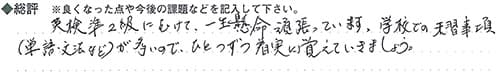 ◆総評 ※良くなった点や今後の課題などを記入して下さい。
英検準2級にむけて、一生懸命頑張っています。学校での未習事項
(単語・文法など)が多いので、ひとつずつ着実に覚えていきましょう。